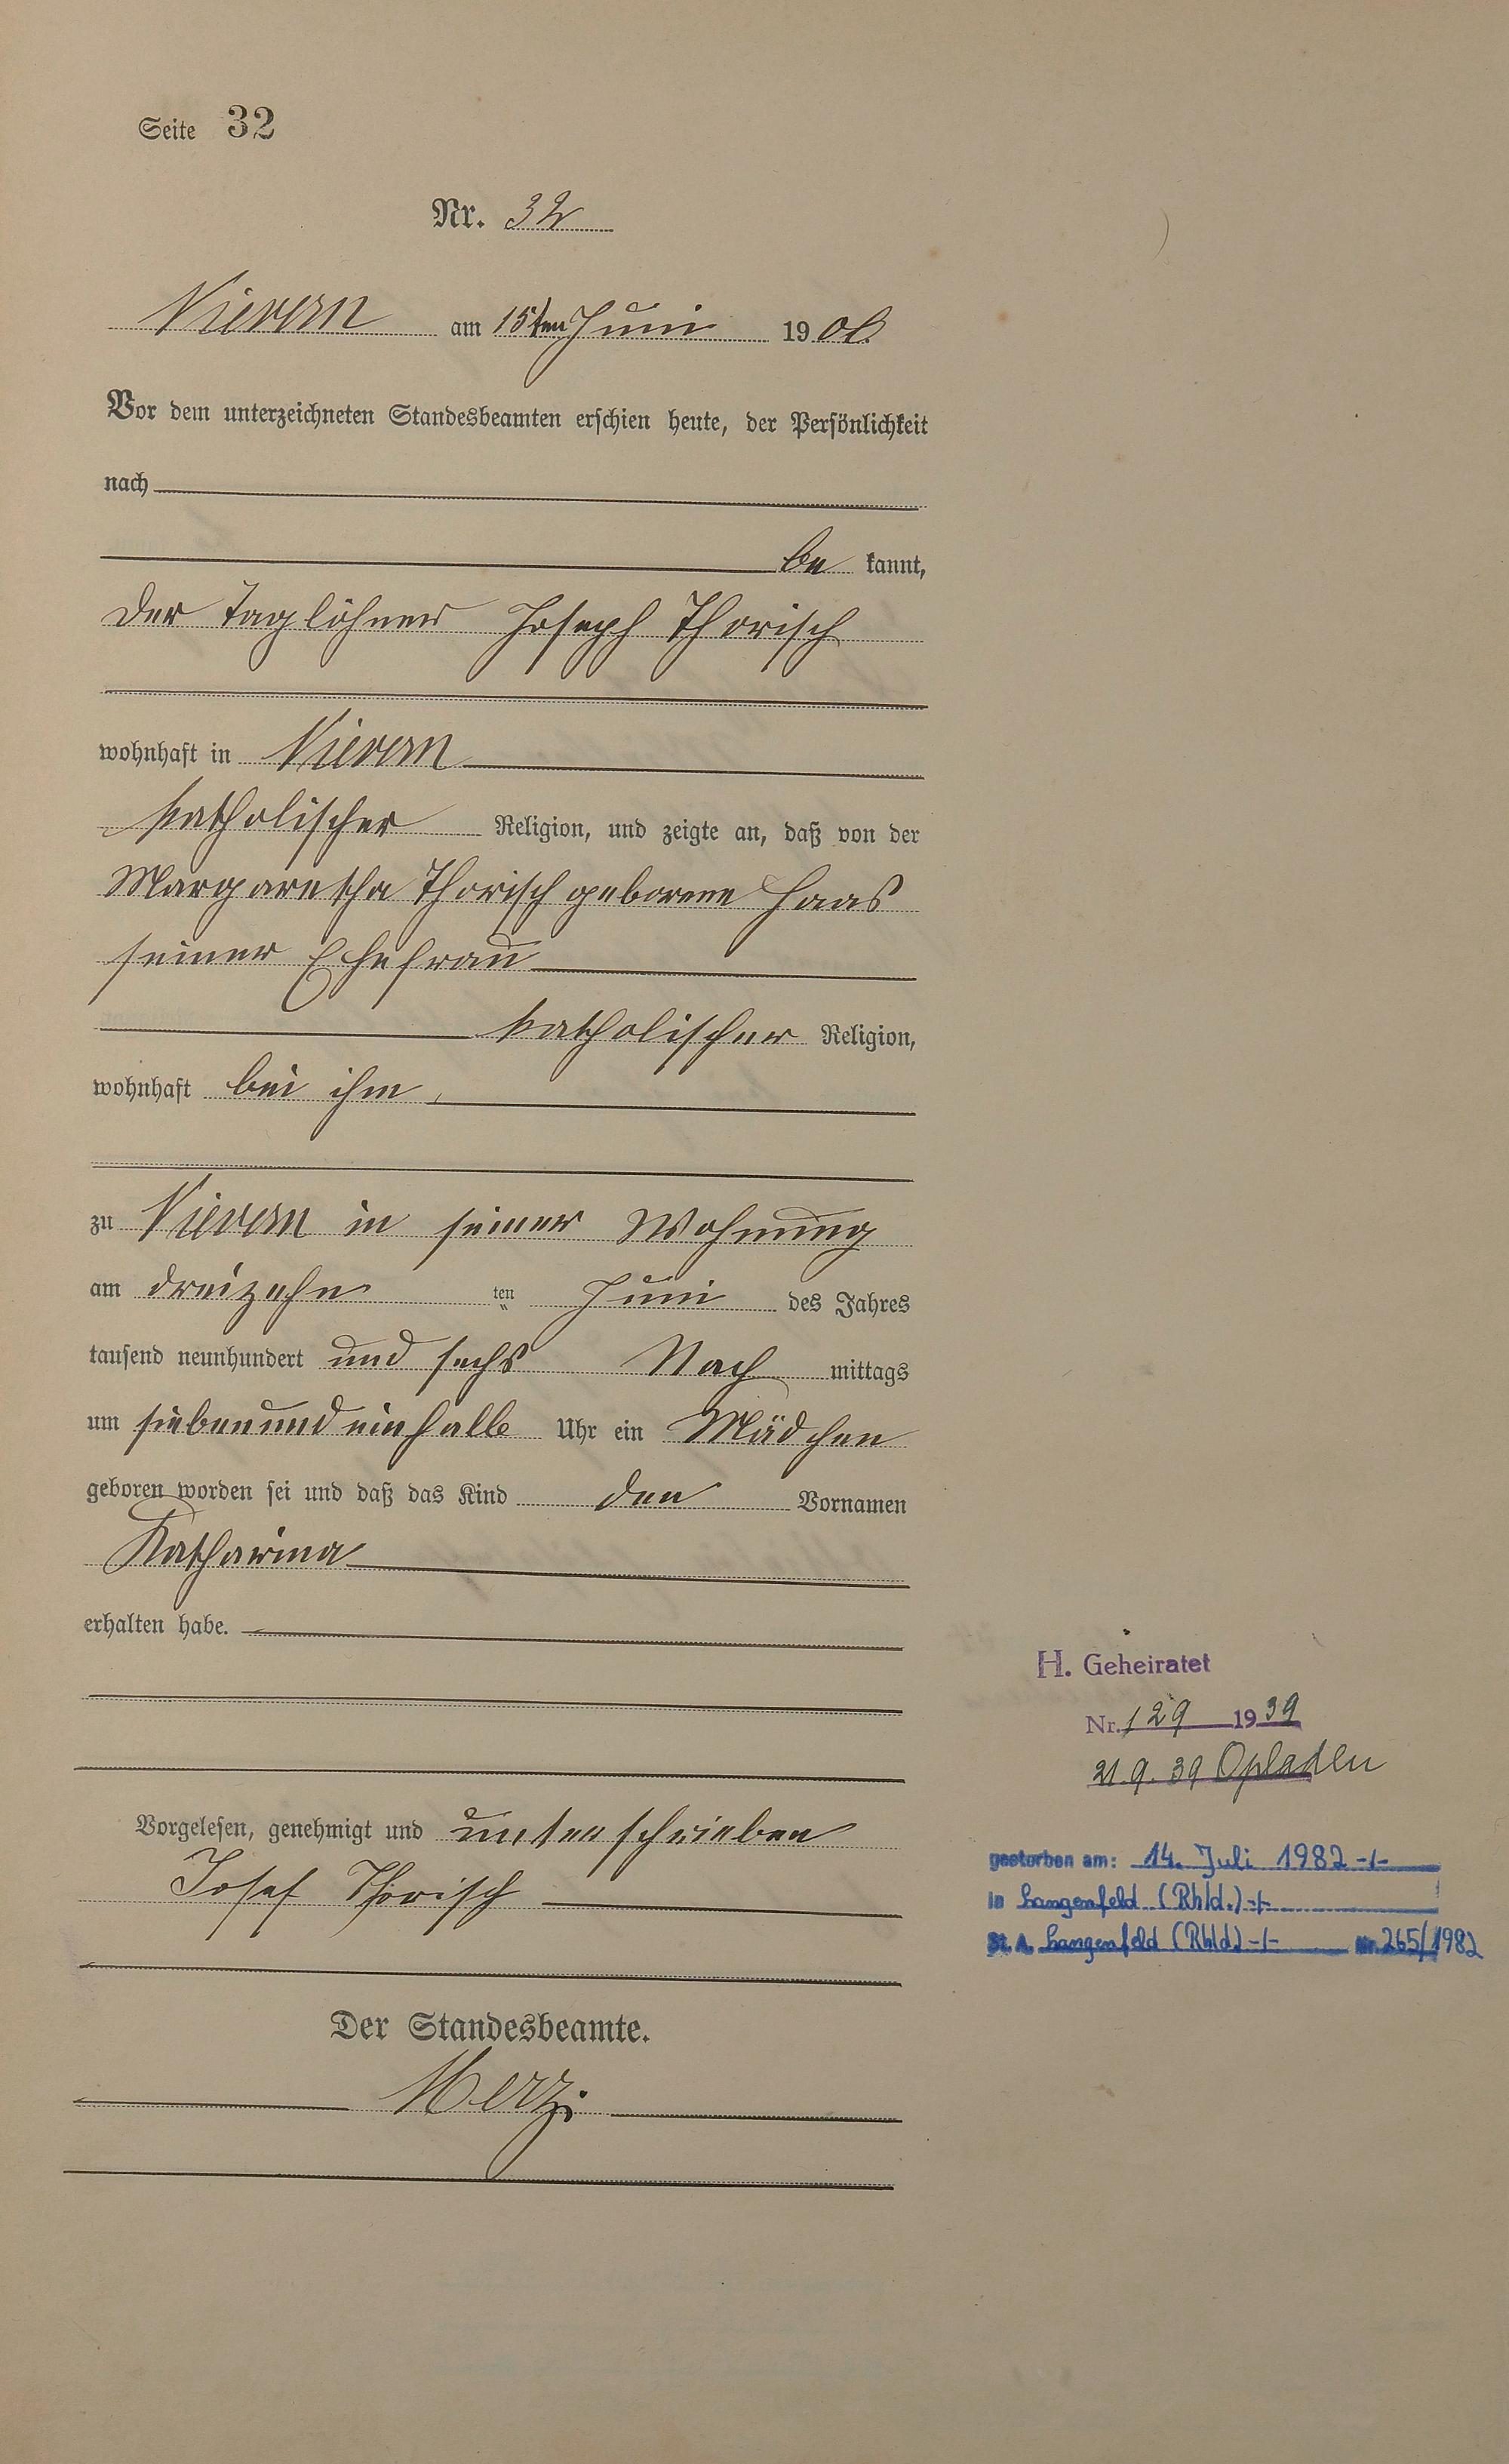 Seite 32
Nr. 32
Nievern am 15ten Juni 1906.
Vor dem unterzeichneten Standesbeamten erschien heute, der Persönlichkeit
nach
be kannt,
der Taglöhner Joseph Thorisch
wohnhaft in Nievern
katholischer Religion, und zeigte an, daß von der
Margaretha Thorisch geborene Haas
seiner Ehefrau
katholischer Religion,
wohnhaft bei ihm,
zu Nievern in seiner Wohnung
am dreizehn ten Juni des Jahres
tausend neunhundert und sechs Nach mittags
um siebenundeinhalb Uhr ein Mädchen
geboren worden sei und daß das Kind den Vornamen
Katharina
erhalten habe.
H. Geheiratet
Nr. 129 1939
21.9.39 Opladen
Vorgelesen, genehmigt und unterschrieben
Josef Thorisch
gestorben am: 14. Juli 1982 -/-
in Langenfeld (Rhld.) -/-
St. A. Langenfeld (Rhld) -/- Nr. 265/1982
Der Standesbeamte.
Merz